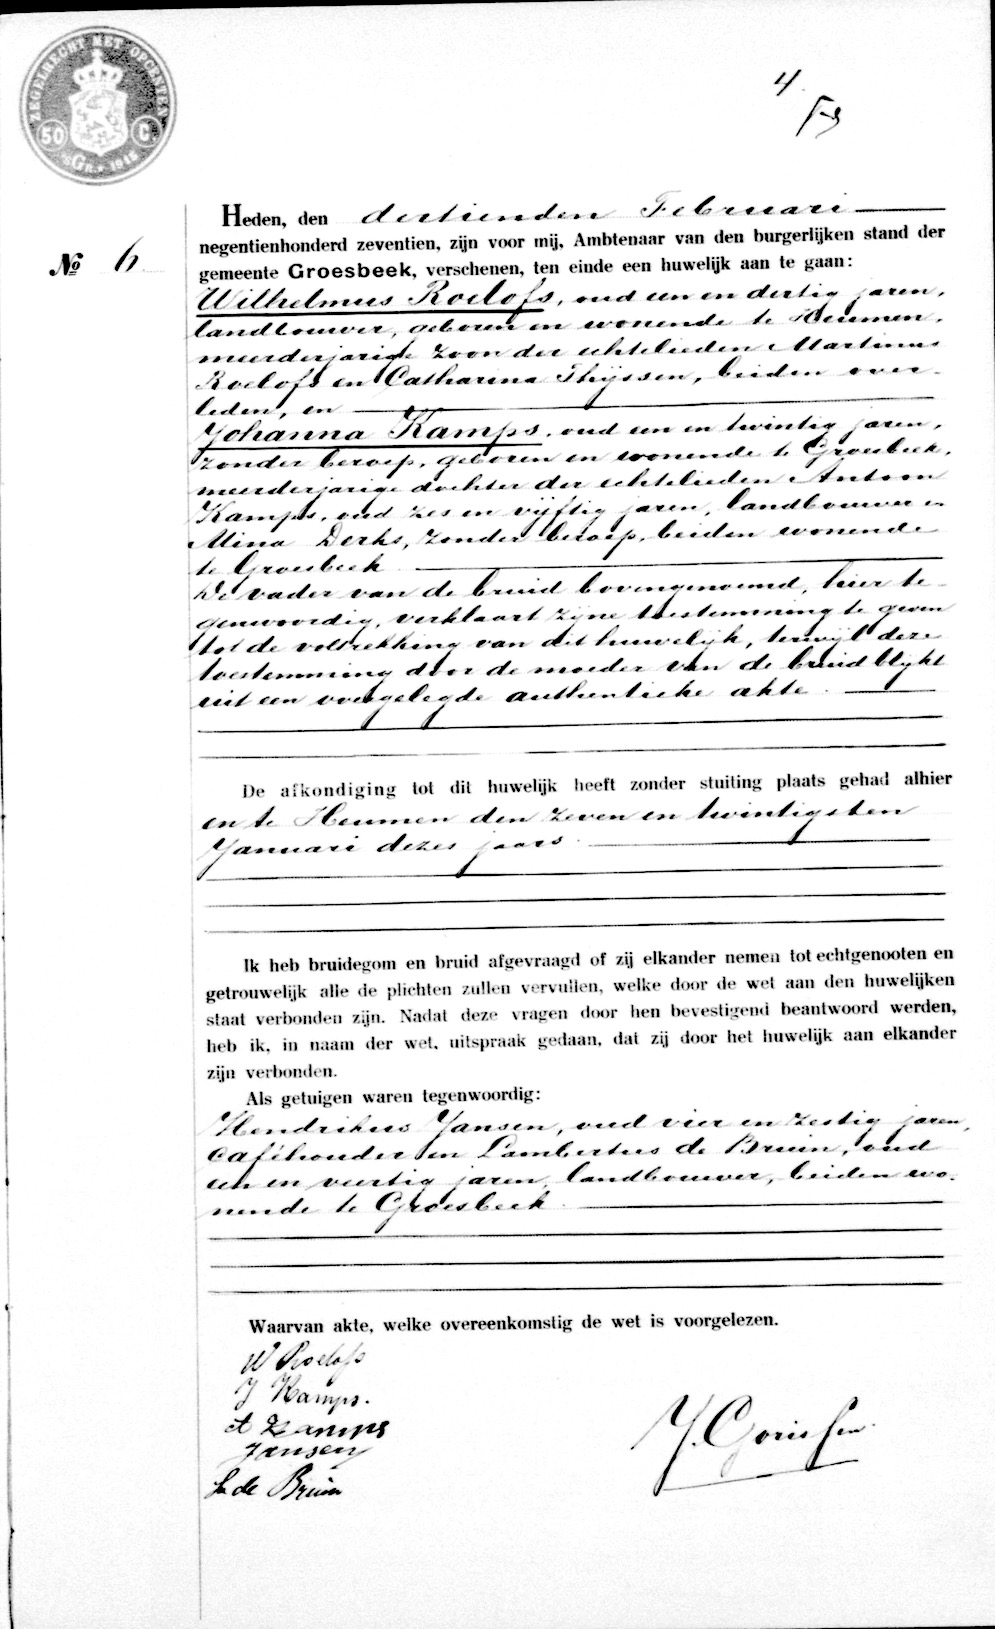 ZEGELRECHT MET OPCENTEN
50 C.
GR. 1916
4
Heden, den dertienden Februari
negentienhonderd zeventien, zijn voor mij, Ambtenaar van den burgerlijken stand der
No 6
gemeente Groesbeek, verschenen, ten einde een huwelijk aan te gaan:
Wilhelmus Roelofs, oud een en dertig jaren,
landbouwer, geboren en wonende te Heumen,
meerderjarige zoon der echtelieden Martinus
Roelofs en Catharina Thijssen, beiden over-
leden, en
Johanna Kamps, oud een en twintig jaren,
zonder beroep, geboren en wonende te Groesbeek,
meerderjarige dochter der echtelieden Antoon
Kamps, oud zes en vijftig jaren, landbouwer en
Mina Derks, zonder beroep, beiden wonende
te Groesbeek
De vader van de bruid bovengenoemd, hier te-
genwoordig, verklaart zijne toestemming te geven
tot de voltrekking van dit huwelijk, terwijl deze
toestemming door de moeder van de bruid blijkt
uit een voorgelegde authentieke akte.
De afkondiging tot dit huwelijk heeft zonder stuiting plaats gehad alhier
en te Heumen den zeven en twintigsten
Januari dezes jaars
Ik heb bruidegom en bruid afgevraagd of zij elkander nemen tot echtgenooten en
getrouwelijk alle de plichten zullen vervullen, welke door de wet aan den huwelijken
staat verbonden zijn. Nadat deze vragen door hen bevestigend beantwoord werden,
heb ik, in naam der wet, uitspraak gedaan, dat zij door het huwelijk aan elkander
zijn verbonden.
Als getuigen waren tegenwoordig:
Hendrikus Jansen, oud vier en zestig jaren,
caféhouder en Lambertus de Bruin, oud
een en veertig jaren, landbouwer, beiden wo-
nende te Groesbeek
Waarvan akte, welke overeenkomstig de wet is voorgelezen.
W Roelofs
J Kamps.
A Kamps
Jansen
L de Bruin
J. Gorissen